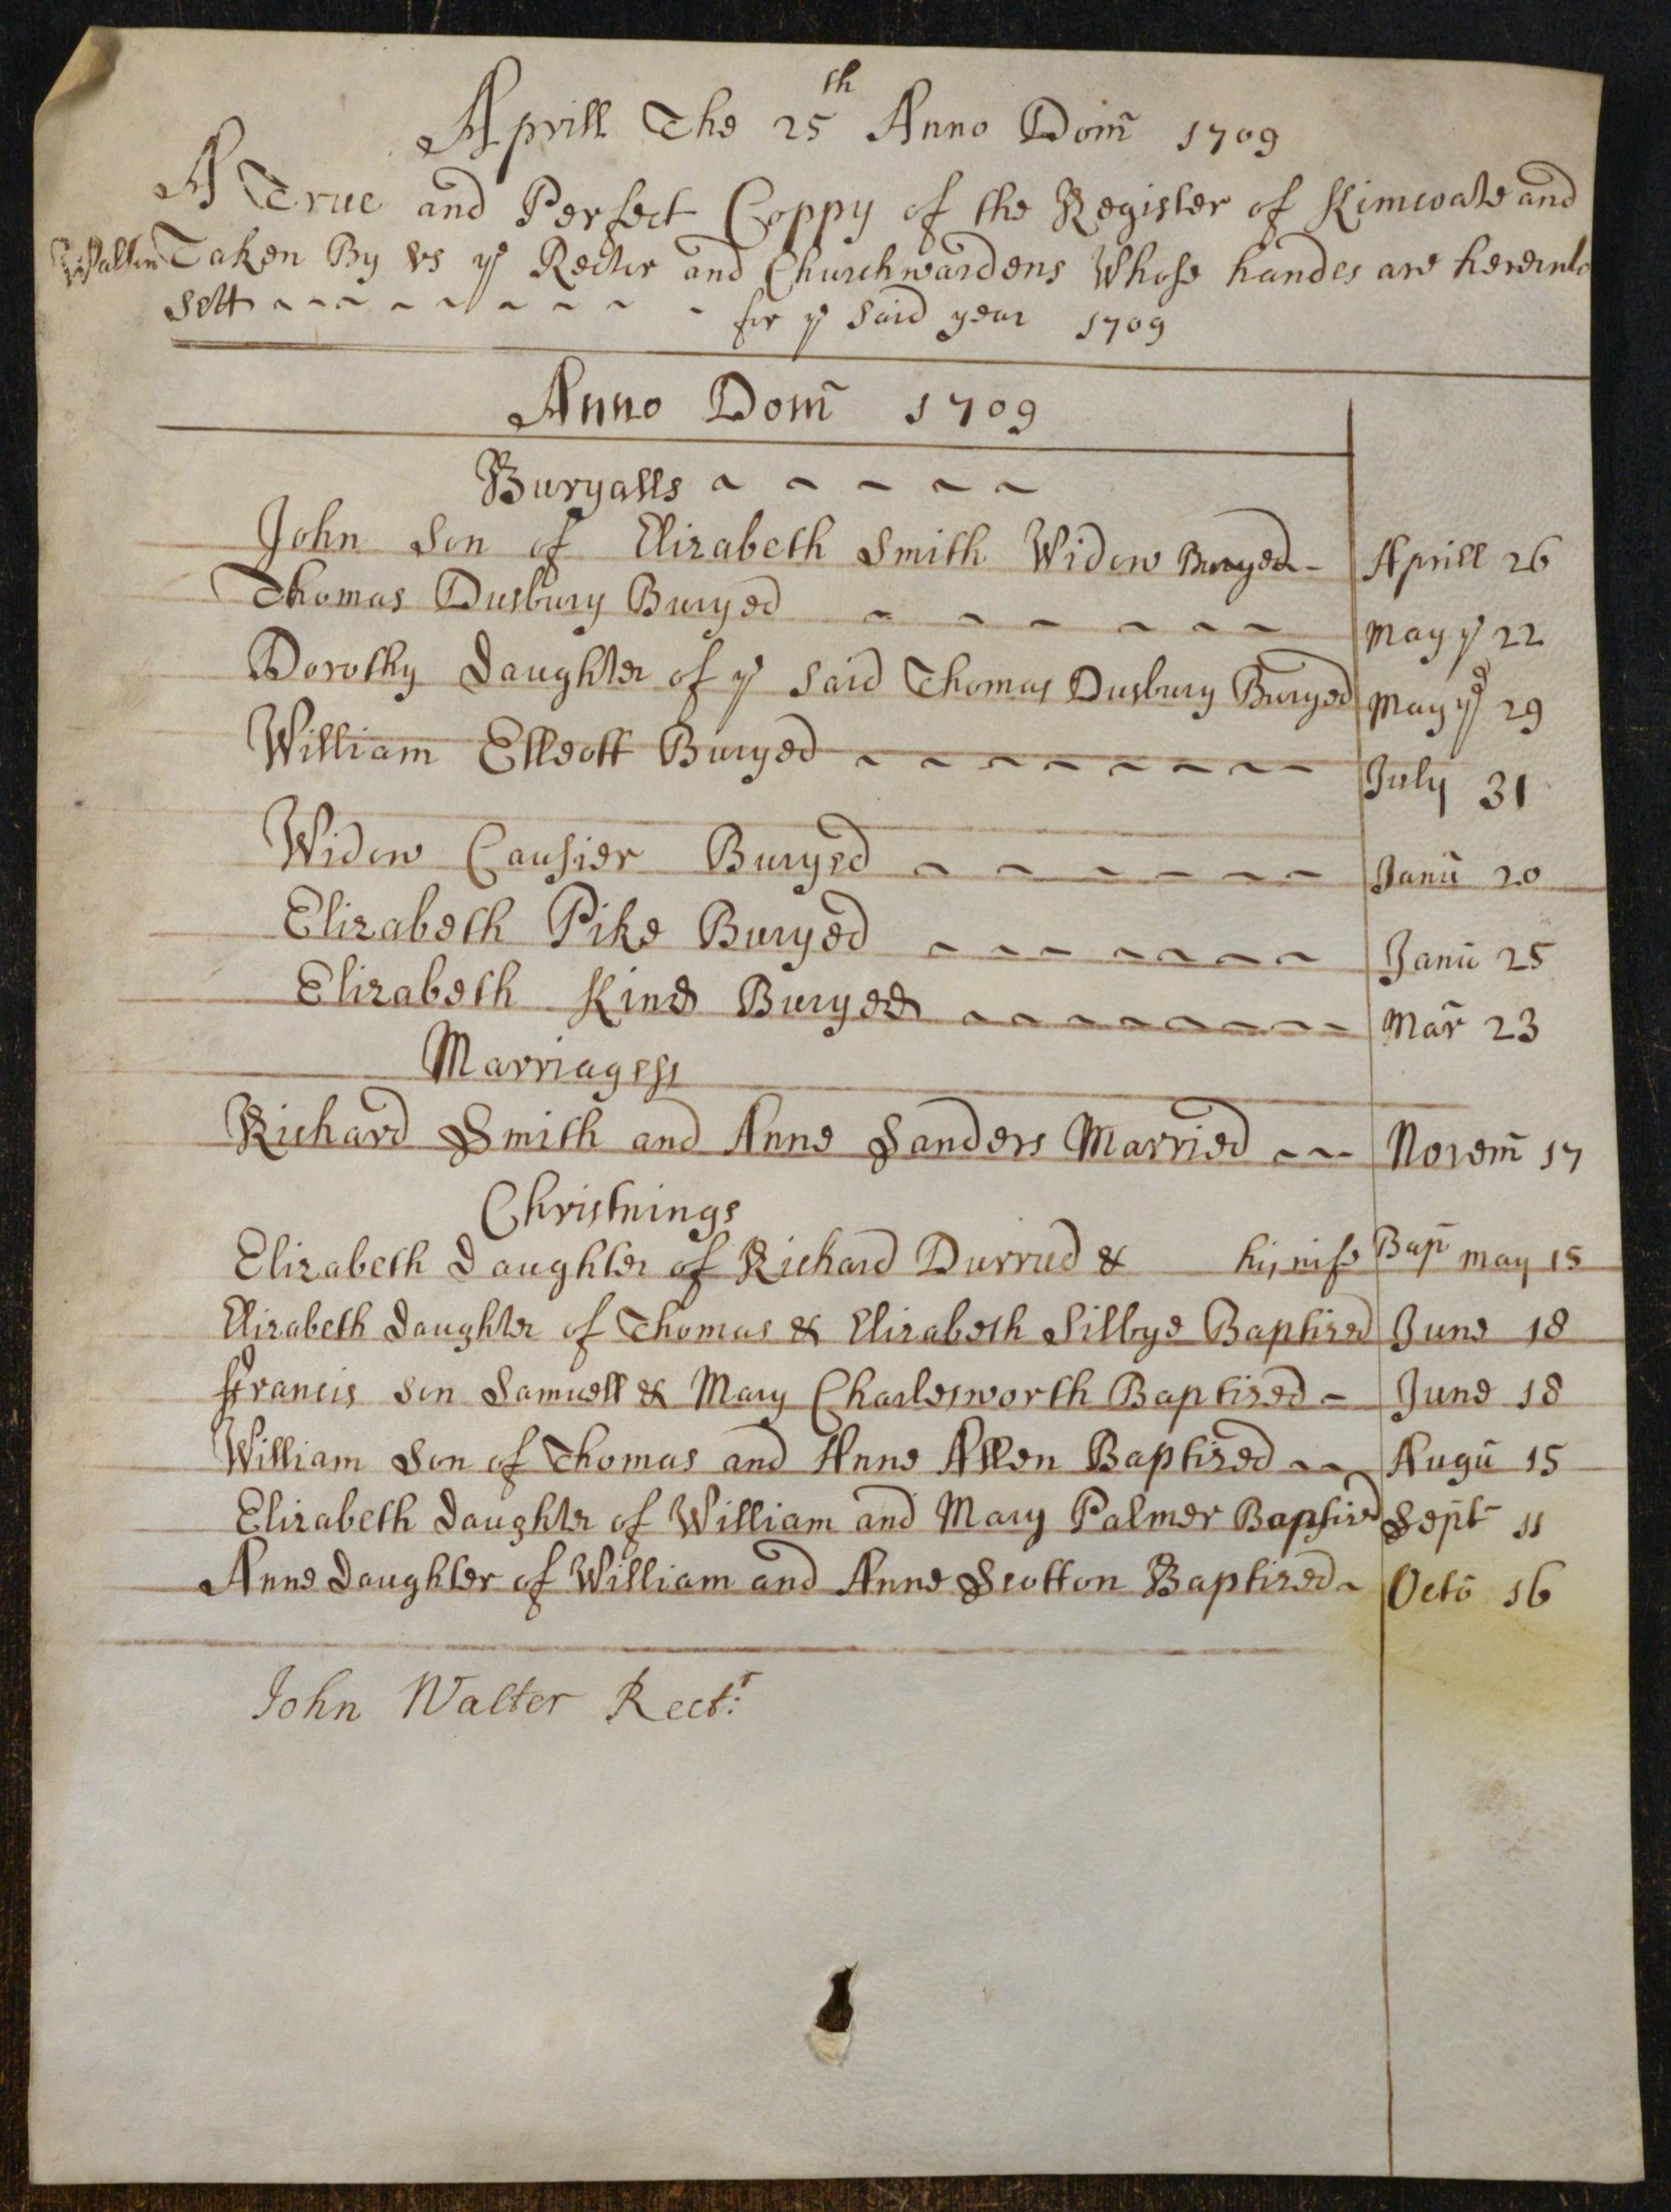 Aprill The 25th Anno Dom̄ 1709
A True and Perfect Coppy of the Register of Kimcoate and
Walton Taken By vs ye Rector and Churchwardens Whose handes are hereinto
sett - - - - - - - - for ye said year 1709
Anno Dom̄ 1709
Buryalls - - - - -
John Son of Elizabeth Smith Widow Buryed - Aprill 26
Thomas Dusbury Buryed - - - - - - May ye 22
Dorothy Daughter of ye said Thomas Dusbury Buryed May ye 29
William Elleott Buryed - - - - - - - - July 31
Widow Causier Buryed - - - - - - Janū 20
Elizabeth Pike Buryed - - - - - - - Janū 25
Elizabeth Kind Buryed - - - - - - - - Mar̄ 23
Marriages
Richard Smith and Anne Sanders Married - - - Novem̄ 17
Christnings
Elizabeth Daughter of Richard Durrud & his wife Bap̄ may 15
Elizabeth Daughter of Thomas & Elizabeth Silbye Baptized June 18
ffrancis Son Samuell & Mary Charlesworth Baptized - June 18
William Son of Thomas and Anne Allen Baptized - - Augū 15
Elizabeth Daughter of William and Mary Palmer Baptized Sept̄ 11
Anne Daughter of William and Anne Scotton Baptized - Octō 16
John Walter Rect:r